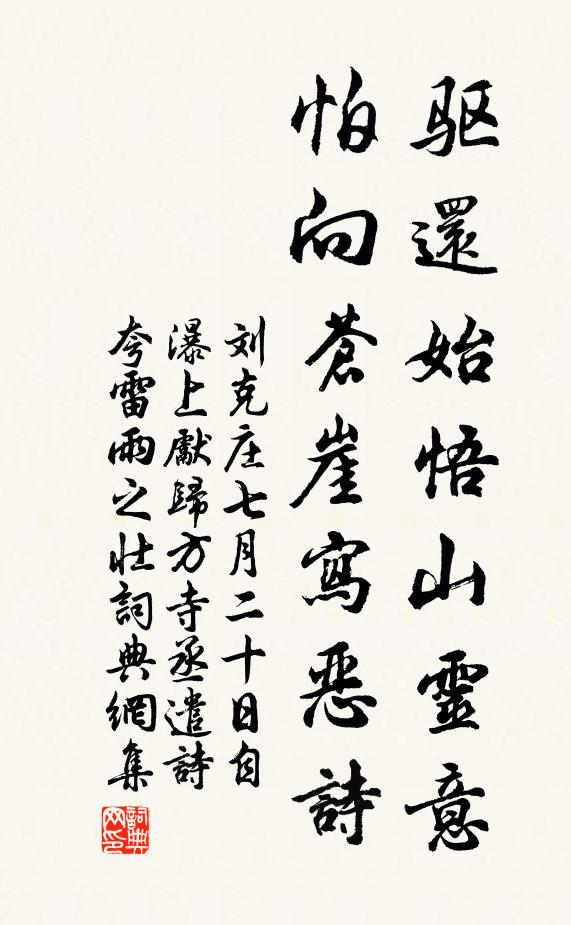 驱還始悟山靈意
怕向蒼崖寫惡詩
刘克庄七月二十日自
瀑上獻歸方寺丞遣詩
夸雷雨之壮詞典網集
詞典网印